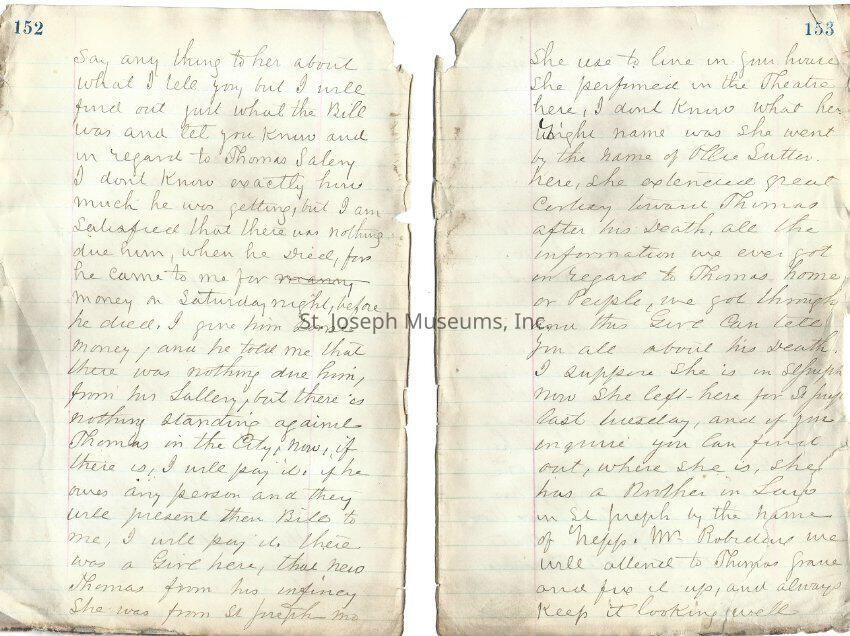 152
Say any thing to her about
what I tell you, but I will
find out just what the Bill
was and let you know and
in regard to Thomas Salery
I dont know exactly how
much he was getting, but I am
Satisfied that there was nothing
due him, when he Died, for
he came to me for many
money on Saturday night, before
he died. I give him
money, and he told me that
there was nothing due him,
from his Sallery, but there is
nothing standing against
Thomas in the City, now, if
there is, I will pay it. if he
owes any person and they
will present then Bill to
me, I will pay it. there
was a Girl here, that new
Thomas from his infincy
She was from St Joseph Mo
153
She use to live in your house
She perfirmed in the Theatre
here, I dont know what her
right name was she went
by the name of Ollie Sutter.
here, she extended great
toward Thomas
after his Death, all the
information we ever got
in regard to Thomas home
or People, we got through
this Girl Can tell
you all about his Death.
I suppose she is in St Joseph
now she left here for St Joseph
last tuesday, and if you
inquire you can find
out, where she is, she
has a Brother in Law
in St Joseph by the name
of Nepps. Mr Robidoux we
will attend to Thomas grave
and fix it up, and always
Keep it looking well
St. Joseph Museums, Inc.